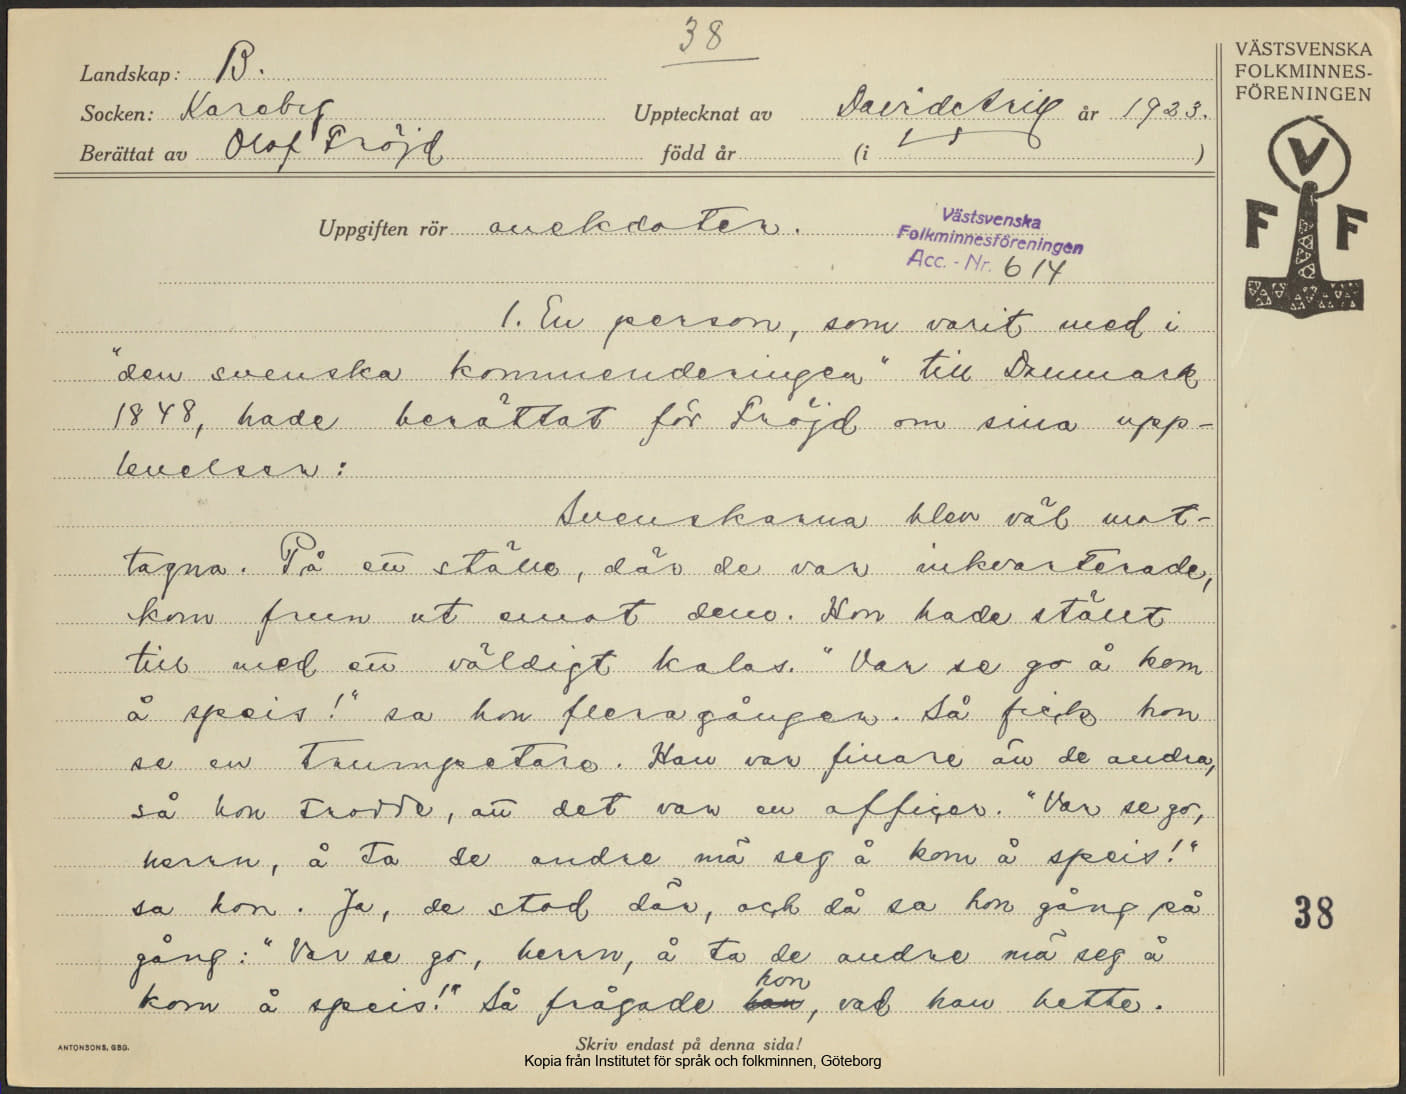 38
Landskap: B.
Socken: Kareby Upptecknat av David Arill år 1923.
Berättat av Olof Fröjd född år (i )
VÄSTSVENSKA
FOLKMINNES-
FÖRENINGEN
V
F F
Uppgiften rör anekdoter.
Västsvenska
Folkminnesföreningen
Acc. - Nr. 614
1. En person, som varit med i
"den svenska kommenderingen" till Danmark
1848, hade berättat för Fröjd om sina upp-
levelser:
Svenskarna blev väl mot-
tagna. På ett ställe, där de var inkvarterade,
kom frun ut emot dem. Hon hade ställt
till med ett väldigt kalas. "Var se go å kom
å speis!" sa hon flera gånger. Så fick hon
se en trumpetare. Han var finare än de andra,
så hon trodde, att det var en officer. "Var se go,
herrn, å ta de andre mä seg å kom å speis!"
sa hon. Ja, de stod där, och då sa hon gång på
gång: "Var se go, herrn, å ta de andre mä seg å
kom å speis!" Så frågade han hon, vad han hette.
38
ANTONSONS, GBG.
Skriv endast på denna sida!
Kopia från Institutet för språk och folkminnen, Göteborg